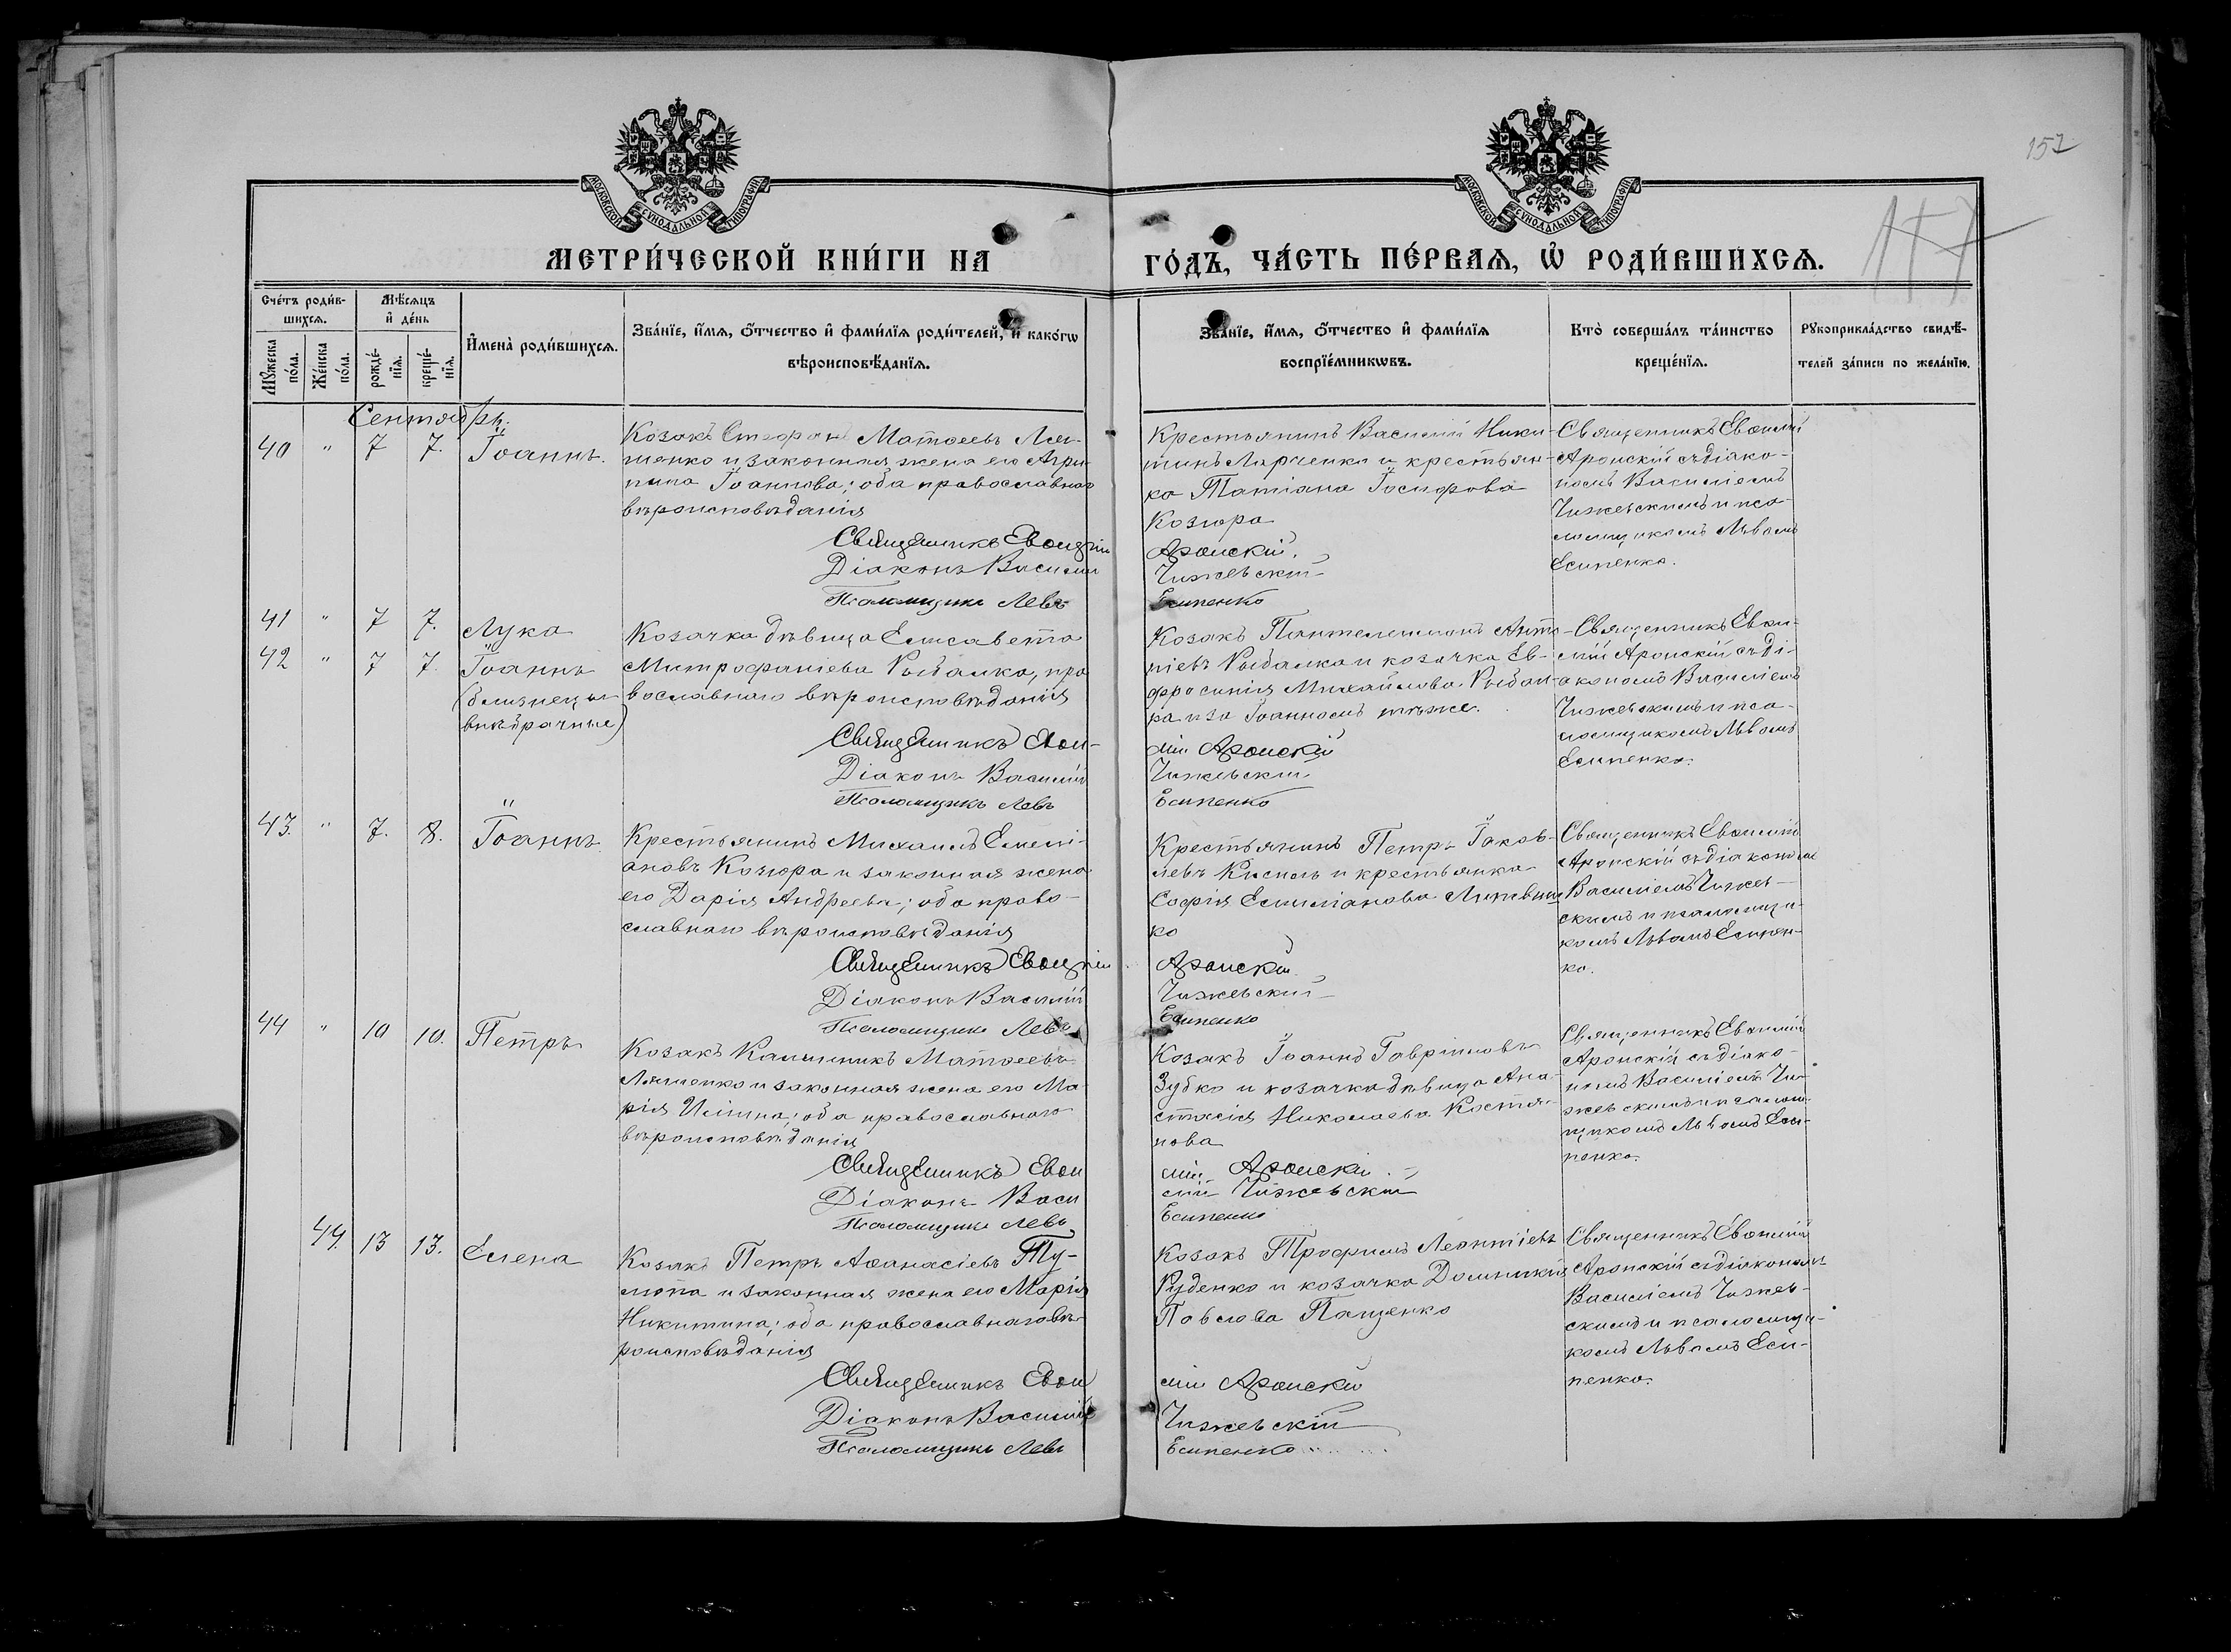 157
117
МОСКОВСКОЙ СѴНОДАЛЬНОЙ ТИПОГРАФІИ
МОСКОВСКОЙ СѴНОДАЛЬНОЙ ТИПОГРАФІИ
МЕТРИ́ЧЕСКОЙ КНИ́ГИ НА
ГО́ДЪ, ЧА́СТЬ ПЕ́РВАѦ, Ѡ҆ РОДИ́ВШИХСѦ.
Сче́тъ роди́в-
шихсѧ.
Мꙋ́жеска
по́ла.
Же́нска
по́ла.
Мѣ́сѧцъ
и҆ де́нь
рожде́-
нїѧ.
креще́-
нїѧ.
И҆мена̀ роди́вшихсѧ.
Зва́нїе, и҆́мѧ, ѻ҆́тчество и҆ фами́лїѧ роди́телей, и҆ како́гѡ
вѣроисповѣ́данїѧ.
Зва́нїе, и҆́мѧ, ѻ҆́тчество и҆ фами́лїѧ
воспрїе́мникѡвъ.
Кто̀ соверша́лъ та́инство
креще́нїѧ.
Рꙋкоприкла́дство свидѣ́-
телей за́писи по жела́нїю.
Сентябрь.
40 " 7 7. Іоаннъ.
Козакъ Стефанъ Матѳеевъ Ляш-
шенко и законная жена его Агри-
пина Іоаннова; оба православнаго
вѣроисповѣданія
Священникъ Евѳимій
Діаконъ Василій
Псаломщикъ Левъ
Крестьянинъ Василій Ники-
тинъ Марченко и крестьян-
ка Татіана Іосифова
Козюра
Аронскій.
Чижевскій
Есипенко
Священникъ Евѳимій
Аронскій съ діако-
номъ Василіемъ
Чижевскимъ и пса-
ломщикомъ Львомъ
Есипенко.
41 " 7 7. Лука
42 " 7 7. Іоаннъ
(близнецы
внѣбрачные)
Козачка дѣвица Елисавета
Митрофаніева Рыбалка, пра
вославнаго вѣроисповѣданія
Священникъ Евѳи-
Діаконъ Василій
Псаломщикъ Левъ
Козакъ Пантелеимонъ Анто-
ніевъ Рыбалка и козачка Ев-
фросинія Михайлова Рыбал-
ка и за Іоанномъ тѣже.
мій Аронскій
Чижевскій
Есипенко
Священникъ Евѳи-
мій Аронскій съ ді-
акономъ Василіемъ
Чижевскимъ и пса-
ломщикомъ Львомъ
Есипенко.
43. " 7. 8. Іоаннъ
Крестьянинъ Михаилъ Емелі-
ановъ Козюра и законная жена
его Дарія Андреева; оба право-
славнаго вѣроисповѣданія
Священникъ Евѳимій
Діаконъ Василій
Псаломщикъ Левъ
Крестьянинъ Петръ Іаков-
левъ Кисиль и крестьянка
Софія Емиліанова Литвин
ко
Аронскій
Чижевскій
Есипенко
Священникъ Евѳимій
Аронскій съ діакономъ
Василіемъ Чижев-
скимъ и псаломщи-
комъ Львомъ Есипен-
ко.
44 " 10 10. Петръ
Козакъ Калинникъ Матѳеевъ
Ляшенко и законная жена его Ма-
рія Иліина; оба православнаго
вѣроисповѣданія
Священникъ Евѳи
Діаконъ Васи
Псаломщикъ Левъ
Козакъ Іоаннъ Гавріиловъ
Зубко и козачка дѣвица Ана-
стасія Николаева Костя-
нова
мій Аронскій
лій Чижевскій
Есипенко
Священникъ Евѳимій
Аронскій съ діако-
номъ Василіемъ Чи-
жевскимъ и псалом-
щикомъ Львомъ Еси-
пенко.
44. 13 13. Елена
Козакъ Петръ Аѳанасіевъ Ту-
люпа и законная жена его Марія
Никитина; оба православнаго вѣ-
роисповѣданія
Священникъ Евѳи
Діаконъ Василій
Псаломщикъ Левъ
Козакъ Трофимъ Леонтіевъ
Руденко и козачка Домникія
Павлова Пащенко
мій Аронскій
Чижевскій
Есипенко
Священникъ Евѳимій
Аронскій съ діакономъ
Василіемъ Чижев-
скимъ и псаломщи-
комъ Львомъ Еси-
пенко.